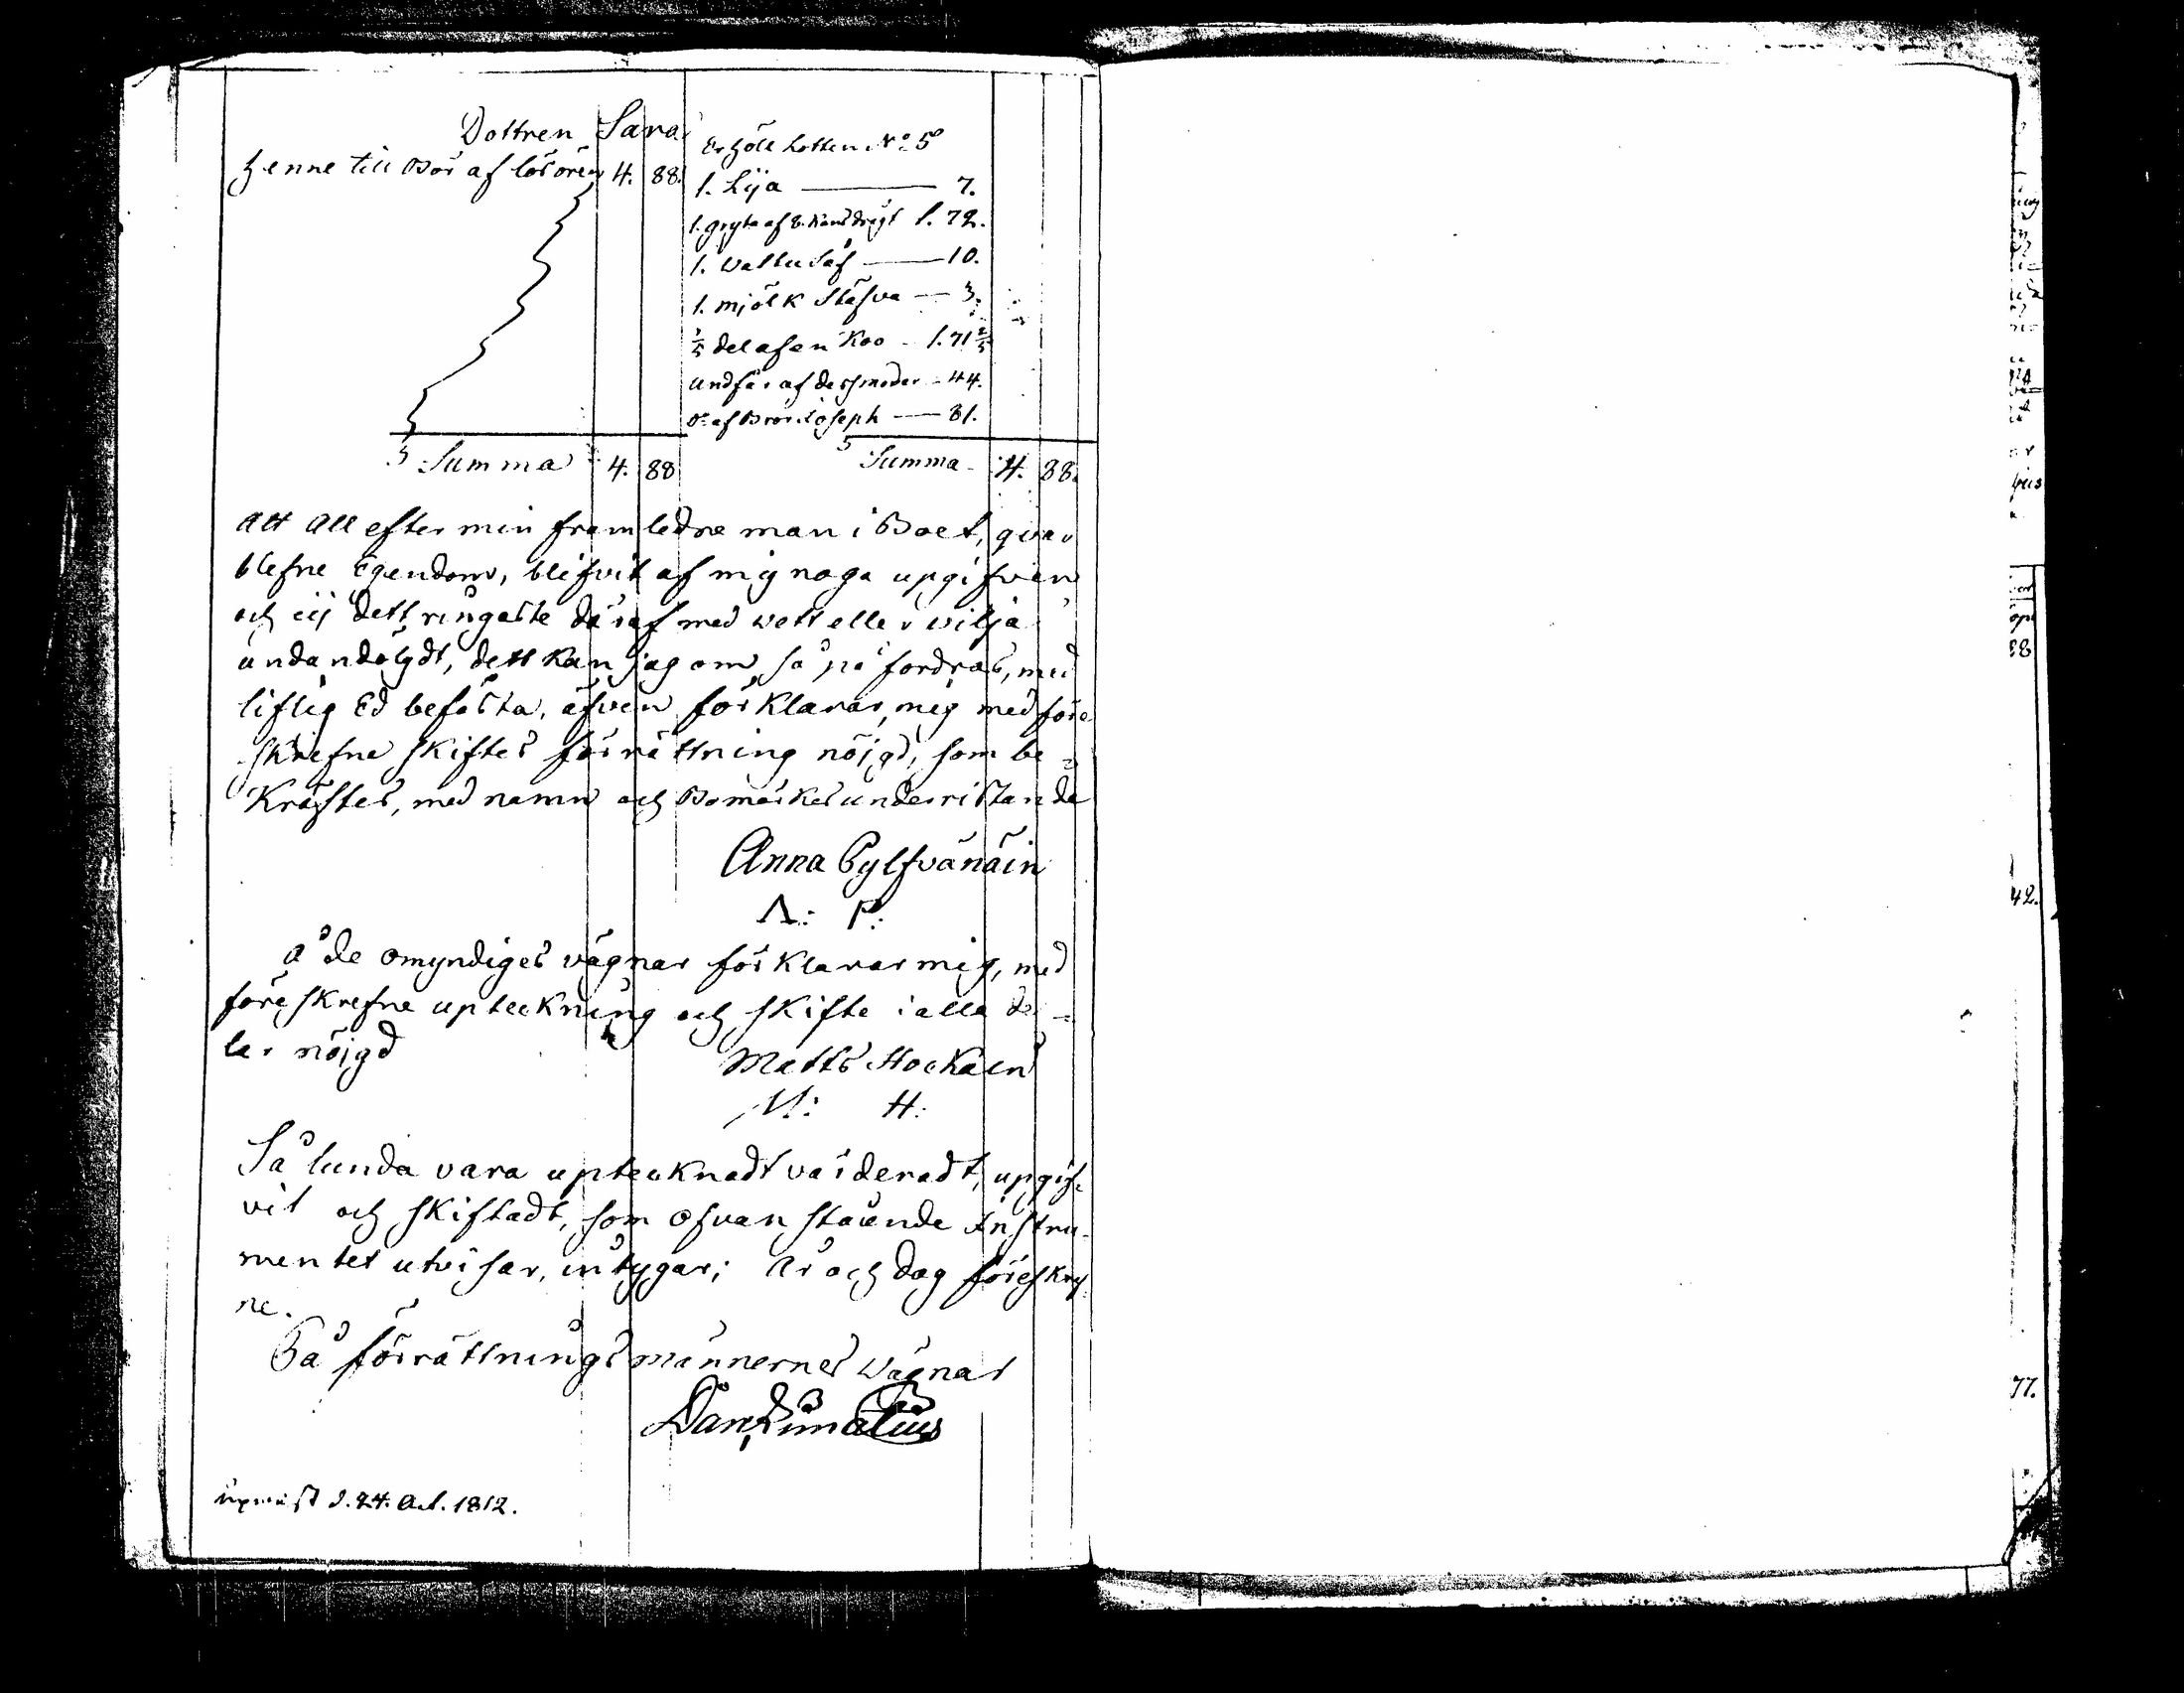 Dottren Sara
henne till Bör af lösören 4. 88.
Erhöll Lotten No 5
1. Lija — 7.
1. gryta af 1. 72.
1. — 10.
1. mjölk Stäfva — 3.
1/5 del af en Koo - 1. 71 2/5
undfår af dess moder - 44.
Do af Bror Joseph — 81.
Summa 4. 88
Summa 4. 88.
Att All efter min framledne man i Boet, qvar
blefne Egendom, blifvit af mig noga upgifven
och eij dett ringaste däraf med vett eller vilja
undandölgdt, dett kan jag om så påfordras, med
liflig Ed befästa, äfven förklarar mig med före
skrefne skiftes förrättning nöjgd, som be=
kräftes, med namn och Bomärkes underristande
Anna Pylfvänäin
A: P:
å de omyndiges vägnar förklarar mig, med
föreskrefne upteckning och skifte i alla de=
lar nöjgd
Matts Hockain
M: H:
Så lunda vara uptecknadt värderadt, upgif-
vit och skiftadt, som ofvanstående Instru-
mentet utvisar, intygar; År och dag föreskref
ne.
På förrättningsmännernes vägnar
Dan Limatius
upvist d. 24. Oct. 1812.